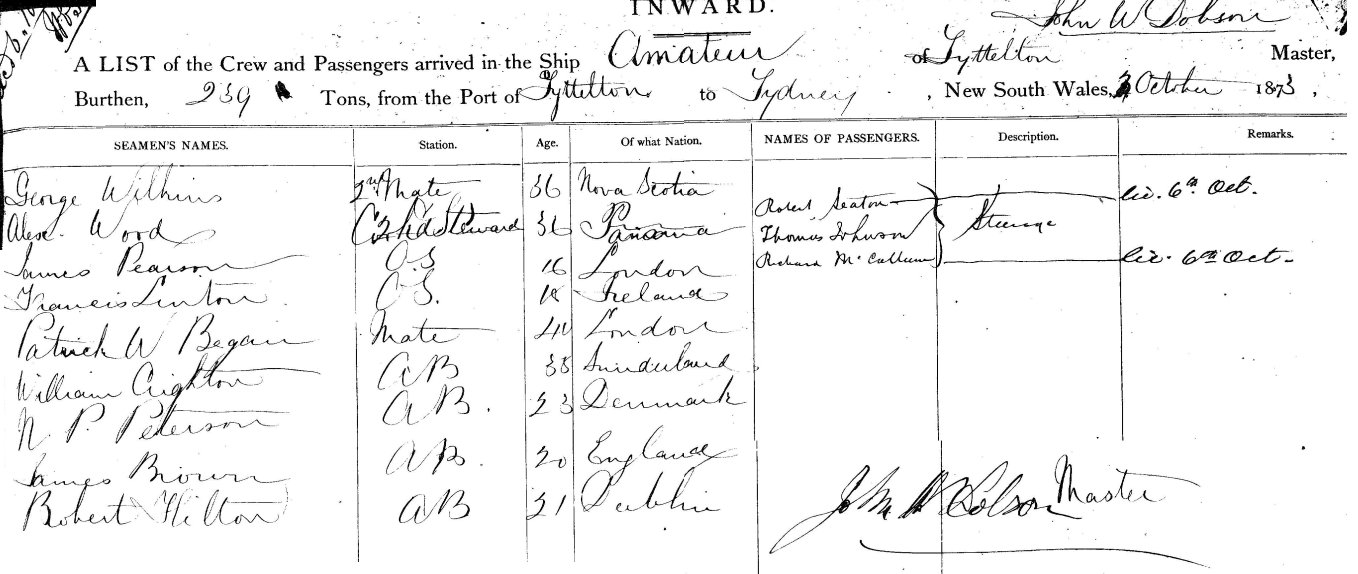 INWARD.
John W Dobson
A LIST of the Crew and Passengers arrived in the Ship Amateur of Lyttelton Master,
Burthen, 239 Tons, from the Port of Lyttelton to Sydney, New South Wales, October 1873,
SEAMEN'S NAMES. Station. Age. Of what Nation. NAMES OF PASSENGERS. Description. Remarks.
George Wilkins 2nd Mate 36 Nova Scotia
Robert Seaton liv. 6th Oct.
Alex. Wood Cook & Steward 36 Panama
Thomas Johnson Steerage
James Pearson O.S 16 London
Richard McCallum liv. 6th Oct.
Francis Linton O.S. 18 Ireland
Patrick W Began Mate London
William Crighton AB 38 Sunderland
N. P. Peterson AB. 23 Denmark
James Brown AB. 20 England
Robert Hilton AB 21 Dublin
John W Dobson Master